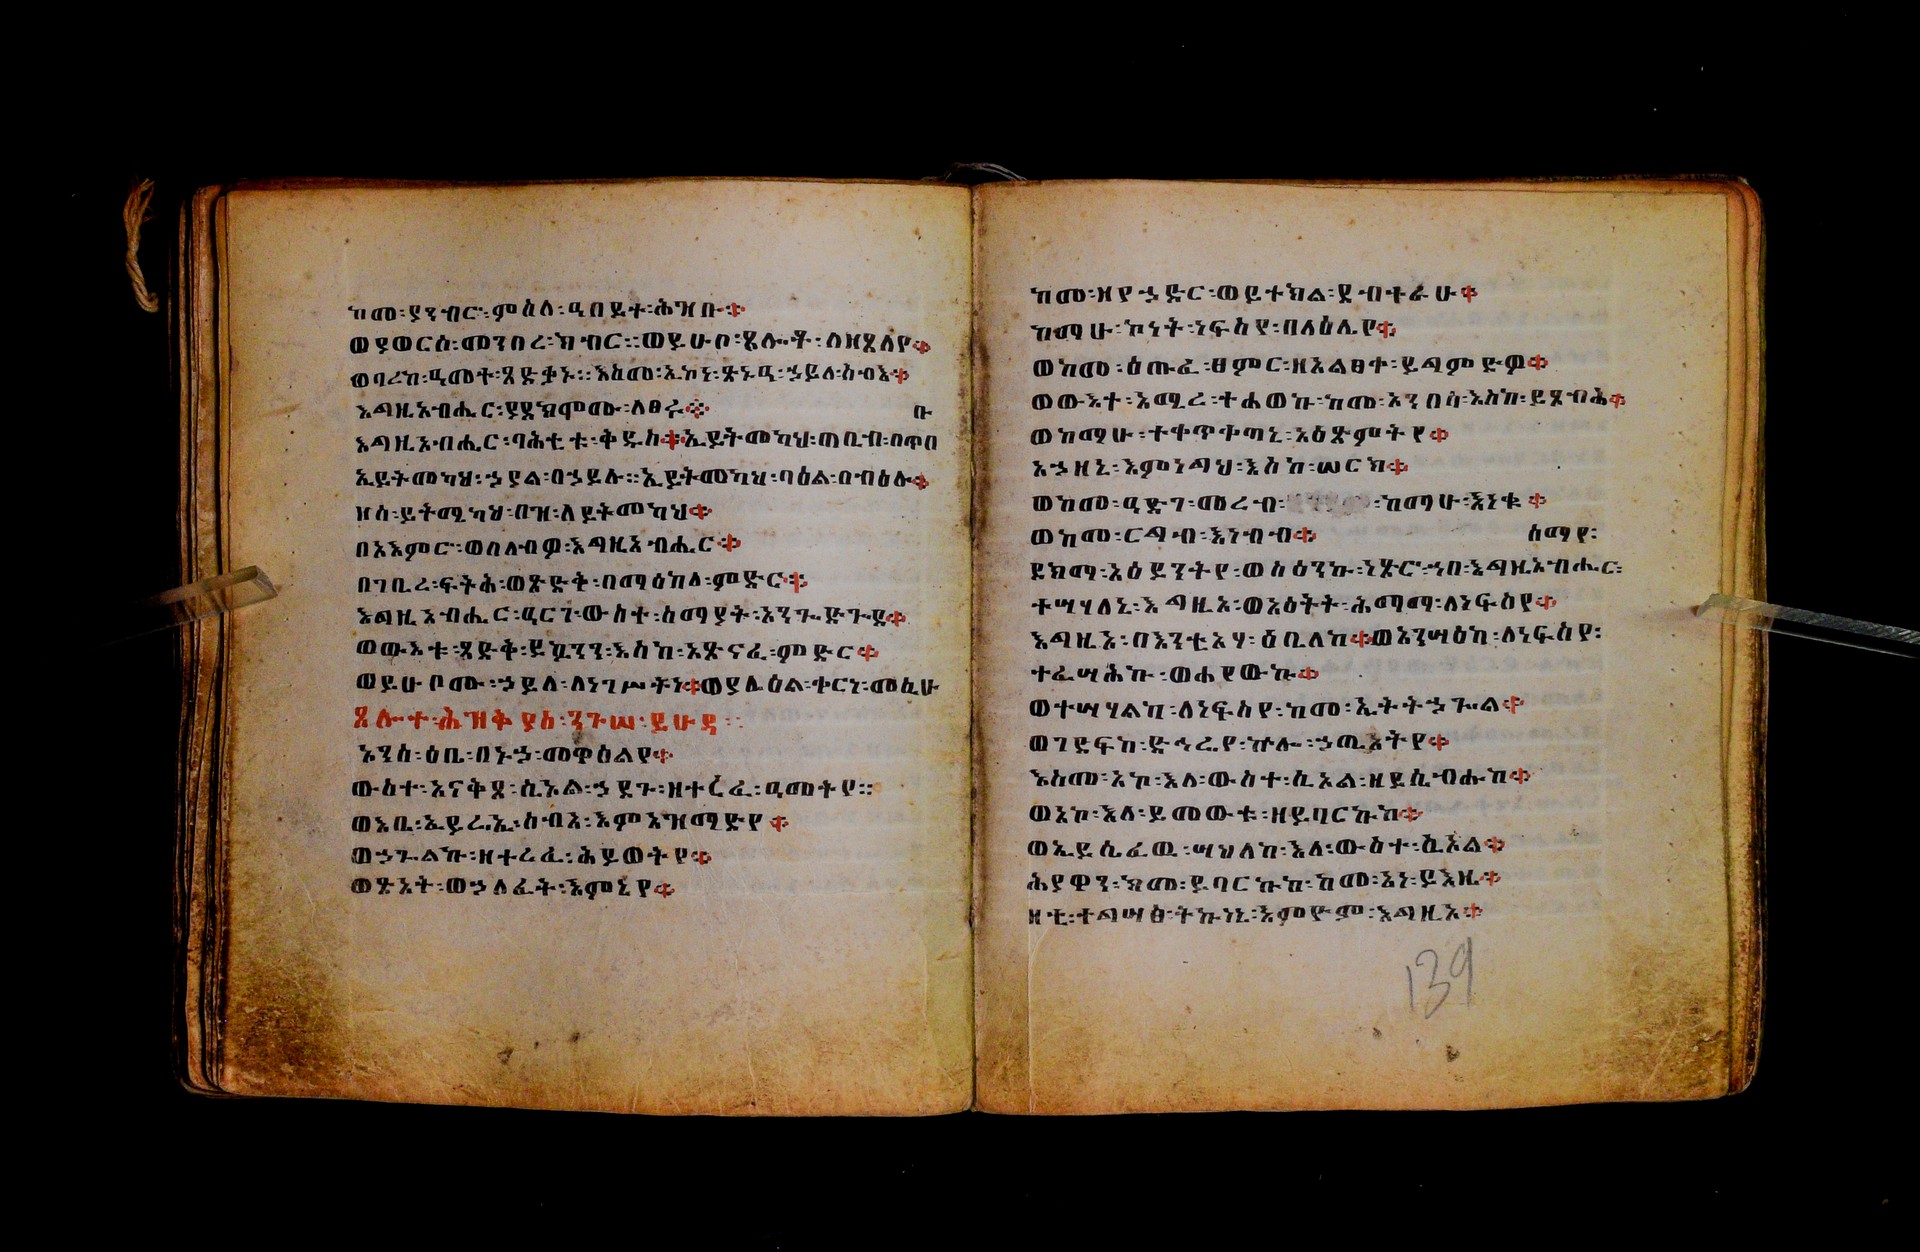 ከመ፡ያንብር፡ምስለ፡ዲበይተ፡ሕዝቡ።
ወያወርስ፡መንበረ፡ክብር።ወይሁቦ፡ጸሎት፡ለዘጸለየ።
ወባረከ፡ዓመተ፡ጻድቃኑ።እስመ፡ኢኮነ፡ጽኑዓ፡ኃይለ፡ብእሴ።
እግዚአብሔር፡ያደክሞሙ፡ለፀሩ።
እግዚአብሔር፡ባሕቲቱ፡ቅዱስ።ኢይትመካህ፡ጠቢብ፡በጥበቡ
ኢይትመካህ፡ኃያል፡በኃይሉ።ኢይትመካህ፡ባዕል፡በብዕሉ።
ዘሰ፡ይትሜካህ፡በዝ፡ለይትመካህ።
በአእምሮ፡ወበለብዎ፡እግዚአብሔር።
በገቢረ፡ፍትሕ፡ወጽድቅ፡በማዕከለ፡ምድር።
እግዚአብሔር፡ዓርገ፡ውስተ፡ሰማያት፡አንጐድጐደ።
ወውእቱ፡ጻድቅ፡ይኴንን፡እስከ፡አጽናፈ፡ምድር።
ወይሁቦሙ፡ኃይለ፡ለነገሥትነ።ወያሌዕል፡ቀርነ፡መሲሁ
ጸሎተ፡ሕዝቅያስ፡ንጉሠ፡ይሁዳ።
አንሰ፡ዕቤ፡በኑኃ፡መዋዕልየ።
ውስተ፡አናቅጸ፡ሲኦል፡ኃደጉ፡ዘተረፈ፡ዓመትየ።
ወእቤ፡ኢይሬኢ፡ስብአ፡እምአዝማድየ።
ወኃጐልኩ፡ዘተረፈ፡ሕይወትየ።
ወጽአት፡ወኃለፈት፡እምኔየ።
ከመ፡ዘየኃድር፡ወይተክል፡ደብተራሁ።
ከማሁ፡ኮነት፡ነፍስየ፡በላዕሌየ።
ወከመ፡ዕጡፈ፡ፀምር፡ዘአልፀቀ፡ይግምድዎ።
ወውእተ፡አሚረ፡ተሐወኩ፡ከመ፡አንበሳ፡እስከ፡ይጸብሕ።
ወከማሁ፡ተቀጥቀጣኒ፡አዕጽምትየ።
አኃዘኒ፡እምነግህ፡እስከ፡ሠርክ።
ወከመ፡ዓድገ፡መረብ፡ከማሁ፡አነቁ።
ወከመ፡ርግብ፡እነብብ።
ስማየ፡
ደክማ፡አዕይንትየ፡ወስዕንኩ፡ነጽሮ፡ኀበ፡እግዚአብሔር፡
ተሣሃለኒ፡እግዚኦ፡ወአዕትት፡ሕማማ፡ለነፍስየ።
እግዚኦ፡በእንቲአሃ፡ዕቤለከ።ወአንሣዕከ፡ለነፍስየ፡
ተፈሣሕኩ፡ወሐየውኩ።
ወተሣሃልከ፡ለነፍስየ፡ከመ፡ኢትትኃጐል።
ወገደፍከ፡ድኅሬየ፡ኵሎ፡ኃጢአትየ።
እስመ፡አኮ፡እለ፡ውስተ፡ሲኦል፡ዘይሴብሑከ።
ወአኮ፡እለ፡ይመውቱ፡ዘይባርኩከ።
ወኢይሴፈዉ፡ሣህለከ፡እለ፡ውስተ፡ሲኦል።
ሕያዋን፡ክመ፡ይባርኩከ፡ከመ፡አነ፡ይእዜ።
ዘቲ፡ተግሣፅ፡ትኩነኒ፡እምዮም፡እግዚኦ።
139